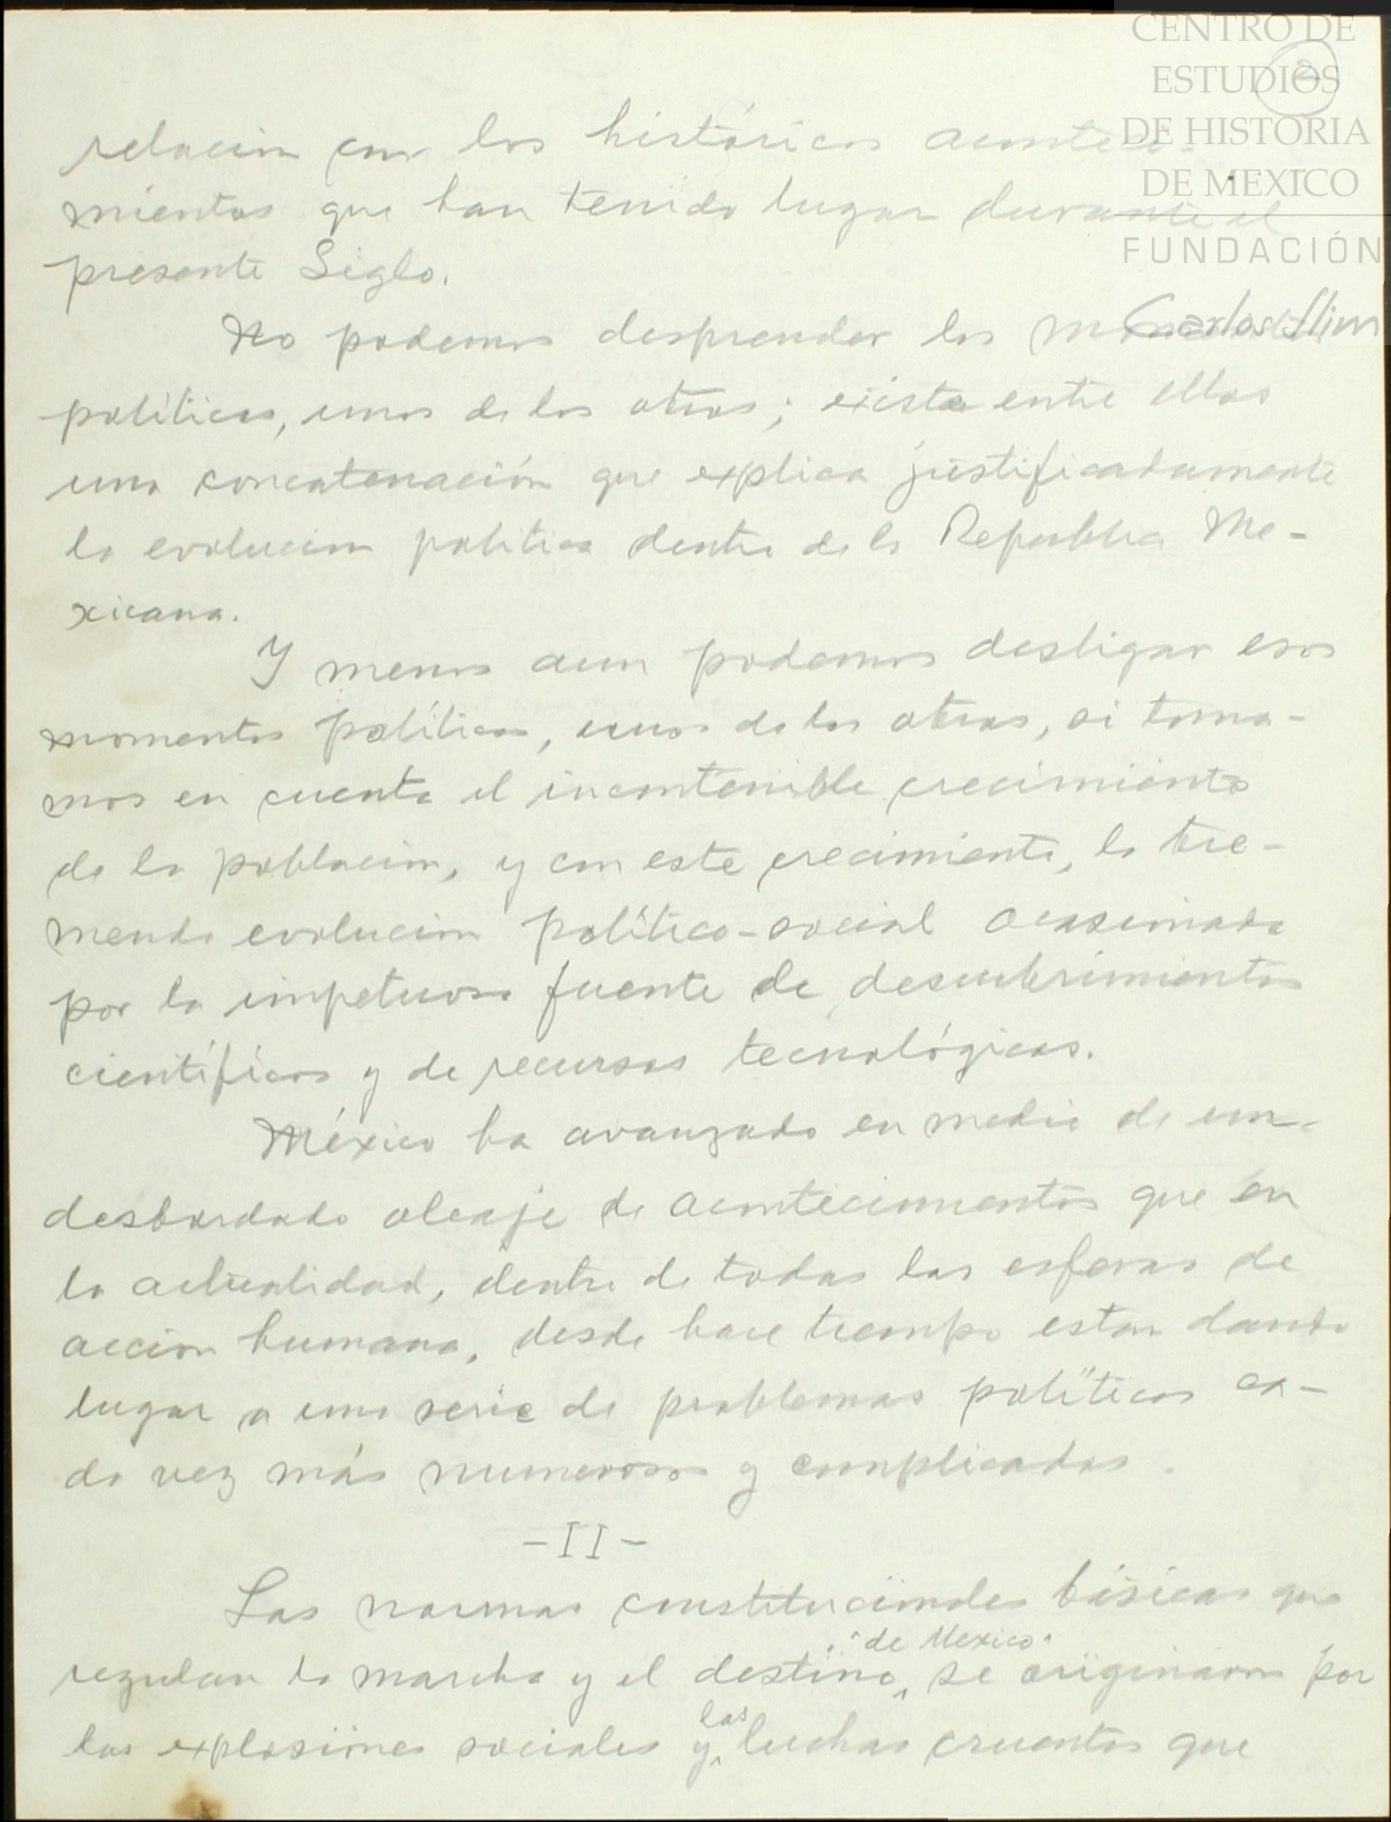 CENTRO DE
ESTUDIOS
DE HISTORIA
DE MEXICO
FUNDACIÓN
Carlos Slim
2
relacion con los históricos aconteci-
mientos que han tenido lugar durante el
presente Siglo.
No podemos desprender los momentos
políticos, unos de los otros; existe entre ellos
una concatenación que explica justificadamente
la evolucion politica dentro de la Republica Me-
xicana.
Y menos aun podemos desligar esos
momentos políticos, unos de los otros, si toma-
mos en cuenta el incontenible crecimiento
de la poblacion, y con este crecimiento, la tre-
menda evolucion político-social ocasionada
por la impetuosa fuente de descubrimientos
científicos y de recursos tecnológicos.
México ha avanzado en medio de un
desbordado oleaje de acontecimientos que en
la actualidad, dentro de todas las esferas de
accion humana, desde hace tiempo estan dando
lugar a una serie de problemas políticos ca-
da vez más numerosos y complicados.
-II-
Las normas constitucionales básicas que
regulan la marcha y el destino de Mexico, se originaron por
las explosiones sociales y las luchas cruentas que